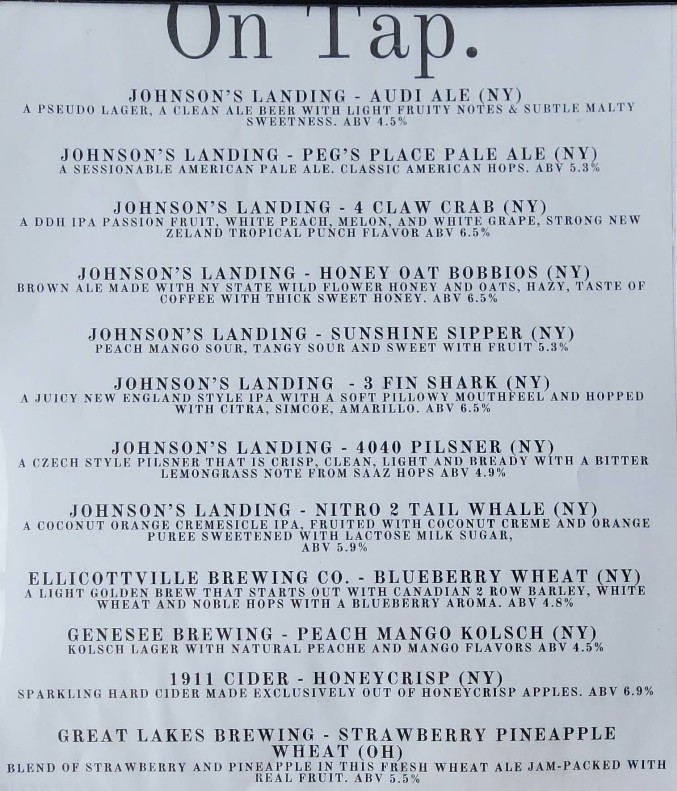 On Tap.
JOHNSON'S LANDING - AUDI ALE (NY)
A PSEUDO LAGER, A CLEAN ALE BEER WITH LIGHT FRUITY NOTES & SUBTLE MALTY
SWEETNESS. ABV 4.5%
JOHNSON'S LANDING - PEG'S PLACE PALE ALE (NY)
A SESSIONABLE AMERICAN PALE ALE. CLASSIC AMERICAN HOPS. ABV 5.3%
JOHNSON'S LANDING - 4 CLAW CRAB (NY)
A DDH IPA PASSION FRUIT, WHITE PEACH, MELON, AND WHITE GRAPE, STRONG NEW
ZELAND TROPICAL PUNCH FLAVOR ABV 6.5%
JOHNSON'S LANDING - HONEY OAT BOBBIOS (NY)
BROWN ALE MADE WITH NY STATE WILD FLOWER HONEY AND OATS, HAZY, TASTE OF
COFFEE WITH THICK SWEET HONEY. ABV 6.5%
JOHNSON'S LANDING - SUNSHINE SIPPER (NY)
PEACH MANGO SOUR, TANGY SOUR AND SWEET WITH FRUIT 5.3%
JOHNSON'S LANDING - 3 FIN SHARK (NY)
A JUICY NEW ENGLAND STYLE IPA WITH A SOFT PILLOWY MOUTHFEEL AND HOPPED
WITH CITRA, SIMCOE, AMARILLO. ABV 6.5%
JOHNSON'S LANDING - 4040 PILSNER (NY)
A CZECH STYLE PILSNER THAT IS CRISP, CLEAN, LIGHT AND BREADY WITH A BITTER
LEMONGRASS NOTE FROM SAAZ HOPS ABV 4.9%
JOHNSON'S LANDING - NITRO 2 TAIL WHALE (NY)
A COCONUT ORANGE CREMESICLE IPA, FRUITED WITH COCONUT CREME AND ORANGE
PUREE SWEETENED WITH LACTOSE MILK SUGAR,
ABV 5.9%
ELLICOTTVILLE BREWING CO. - BLUEBERRY WHEAT (NY)
A LIGHT GOLDEN BREW THAT STARTS OUT WITH CANADIAN 2 ROW BARLEY, WHITE
WHEAT AND NOBLE HOPS WITH A BLUEBERRY AROMA. ABV 4.8%
GENESEE BREWING - PEACH MANGO KOLSCH (NY)
KOLSCH LAGER WITH NATURAL PEACHE AND MANGO FLAVORS ABV 4.5%
1911 CIDER - HONEYCRISP (NY)
SPARKLING HARD CIDER MADE EXCLUSIVELY OUT OF HONEYCRISP APPLES. ABV 6.9%
GREAT LAKES BREWING - STRAWBERRY PINEAPPLE
WHEAT (OH)
BLEND OF STRAWBERRY AND PINEAPPLE IN THIS FRESH WHEAT ALE JAM-PACKED WITH
REAL FRUIT. ABV 5.5%